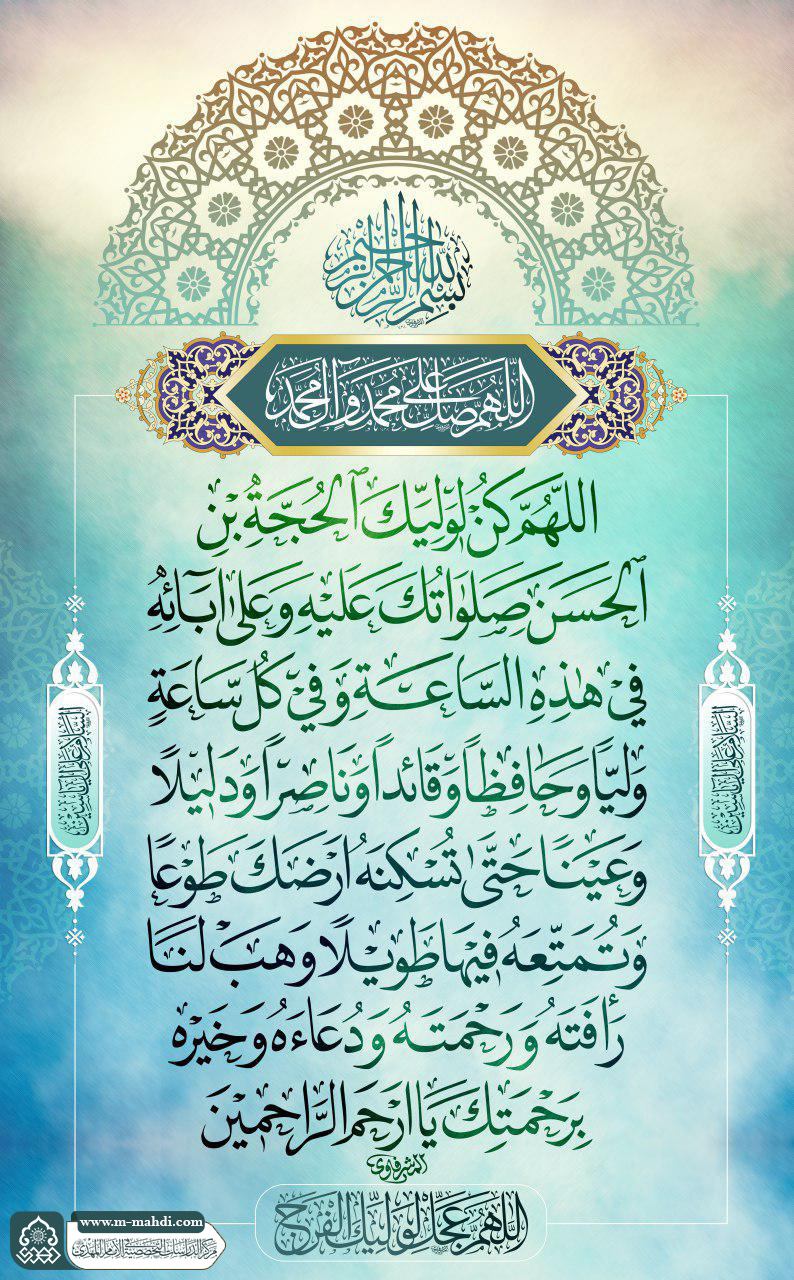 بسم الله الرحمن الرحيم
اللهم صل على محمد وآل محمد
اللهُمَّ كُنْ لِوَلِيِّكَ ٱلحُجَّةِ بْنِ
ٱلحَسَنِ صَلَوٰاتُكَ عَلَيْهِ وَعَلىٰ اٰبَائِهِ
فِي هٰذِهِ السَّاعَةِ وَفِي كُلِّ سَاعَةٍ
وَلِيًّا وَحَافِظاً وَقَائِداً وَنَاصِراً وَدَلِيْلًا
وَعَيْنًا حَتَّىٰ تُسْكِنَهُ اَرْضَكَ طَوْعًا
وَتُمَتِّعَهُ فِيْهَا طَوِيْلًا وَهَبْ لَنَا
رَأفَتَهُ وَرَحْمَتَهُ وَدُعَاءَهُ وَخَيْرَهُ
بِرَحْمَتِكَ يَا اَرْحَمَ الرَّاحِمِيْنَ
المشرفاوي
اللهم عجل لوليك الفرج
السلام على آل ياسين
السلام على آل ياسين
www.m-mahdi.com
مركز الدراسات التخصصية في الإمام المهدي